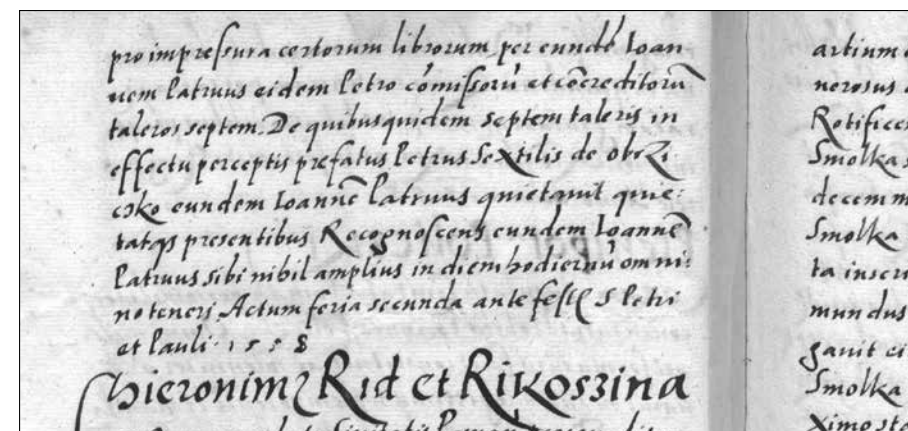 pro impressura certorum librorum per eundē Ioan
nem Patruus eidem Petro cōmissorū et cōcreditorū
taleros septem. De quibusquidem septem taleris in
effectu perceptis prefatus Petrus Sextilis de obrzi
czko eundem Ioannē Patruus quietauit quie:
tatqs presentibus Recognoscens eundem Ioannē
Patruus sibi nihil amplius in diem hodiernū omni:
no teneri. Actum feria secunda ante festū S Petri
et Pauli 1558
Hieronimꝰ Rid et Rikoszina
artium
nerosus
Rotificer
Smolka
decem m
Smolka
ta inscri
mundus
gauit ei
Smolka